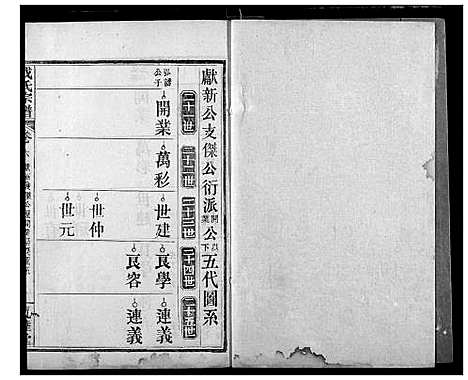 獻新公支傑公衍派開業公以下五代圖系
二十一世 二十二世 二十三世 二十四世 二十五世
弘諸公子 開業 萬彩 世建 良學 連義
世仲 良容 連義
世元
戚氏宗譜